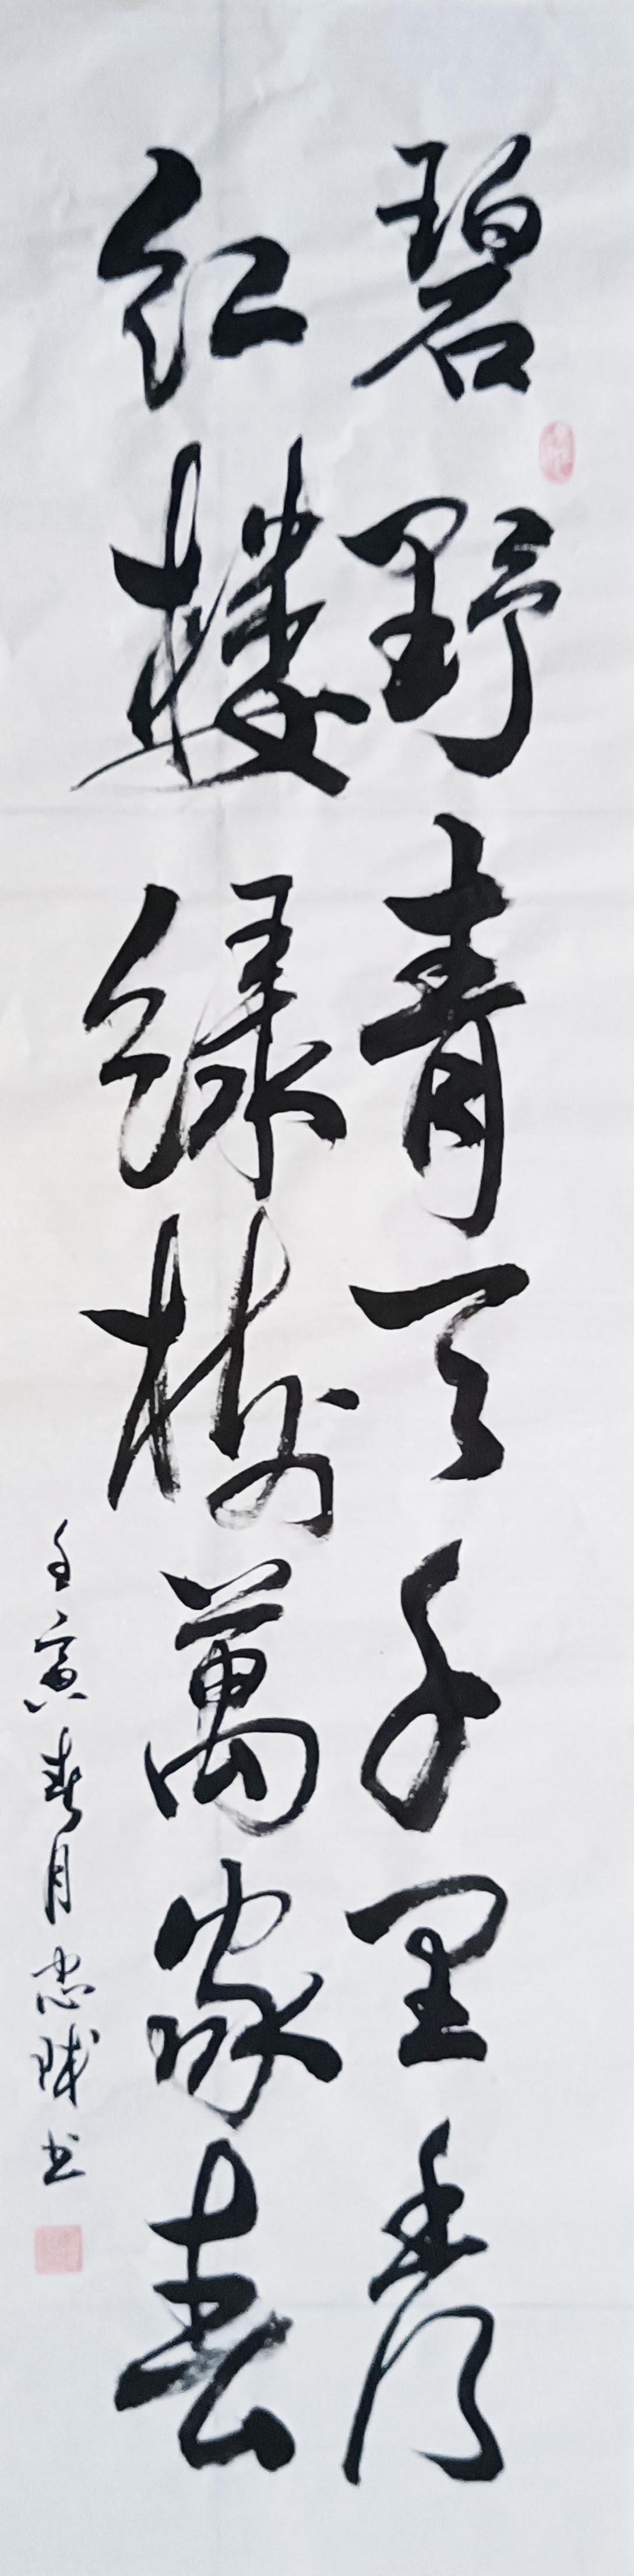 碧野青天千里秀
红楼绿树萬家春
壬寅春月忠诚书